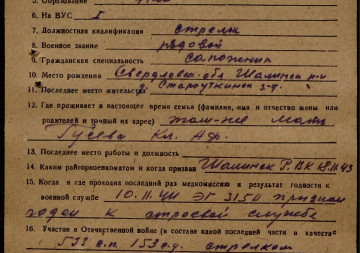 5. Образование
6. На ВУС I
7. Должностная квалификация стрелок
8. Военное звание рядовой
9. Гражданская специальность сапожник
10. Место рождения Свердловск. обл Шалинск р-н
11. Последнее место жительства Староуткинск
12. Где проживает в настоящее время семья (фамилия, имя и отчество жены или
родителей и точный их адрес) там-же мать
Гусева Кл. Аф.
13. Последнее место работы и должность
14. Каким райгорвоенкоматом и когда призван Шалинск РВК
15. Когда и где проходил последний раз медкомиссию и результат годности к
военной службе 10.11.44 ЭГ 3150 признан
годен к строевой службе
16. Участие в Отечественной войне (в составе какой последней части и качестве
533 с.п. 153 с.д. стрелком